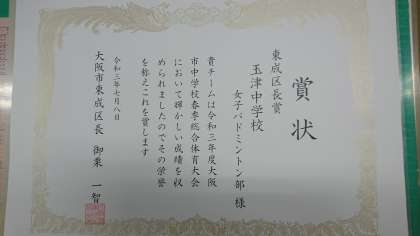 賞状
東成区長賞
玉津中学校
女子バドミントン部 様
貴チームは令和三年度大阪
市中学校春季総合体育大会
において輝かしい成績を収
められましたのでその栄誉
を称えこれを賞します
令和三年七月八日
大阪市東成区長 御栗 一智